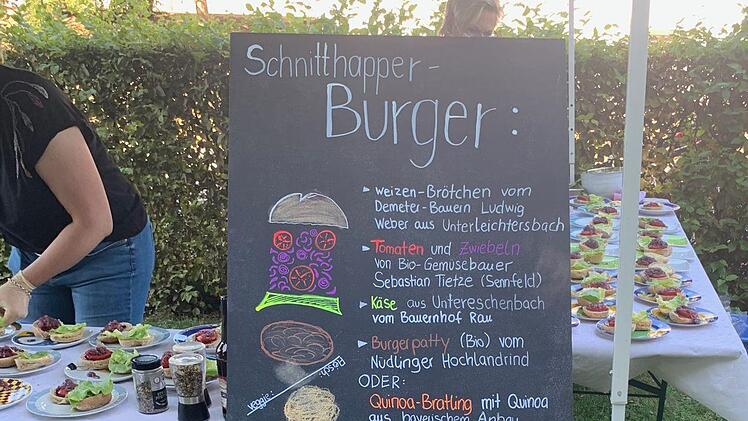 Schnitthapper-
Burger:
▸ weizen-Brötchen vom
Demeter-Bauern Ludwig
Weber aus Unterleichtersbach
▸ Tomaten und Zwiebeln
von Bio-Gemüsebauer
Sebastian Tietze (Sennfeld)
▸ Käse aus Untereschenbach
vom Bauernhof Rau
▸ Burgerpatty (Bio) vom
Nüdlinger Hochlandrind
ODER:
Quinoa-Bratling mit Quinoa
aus bayerischem Anbau
Fleisch
veggie: